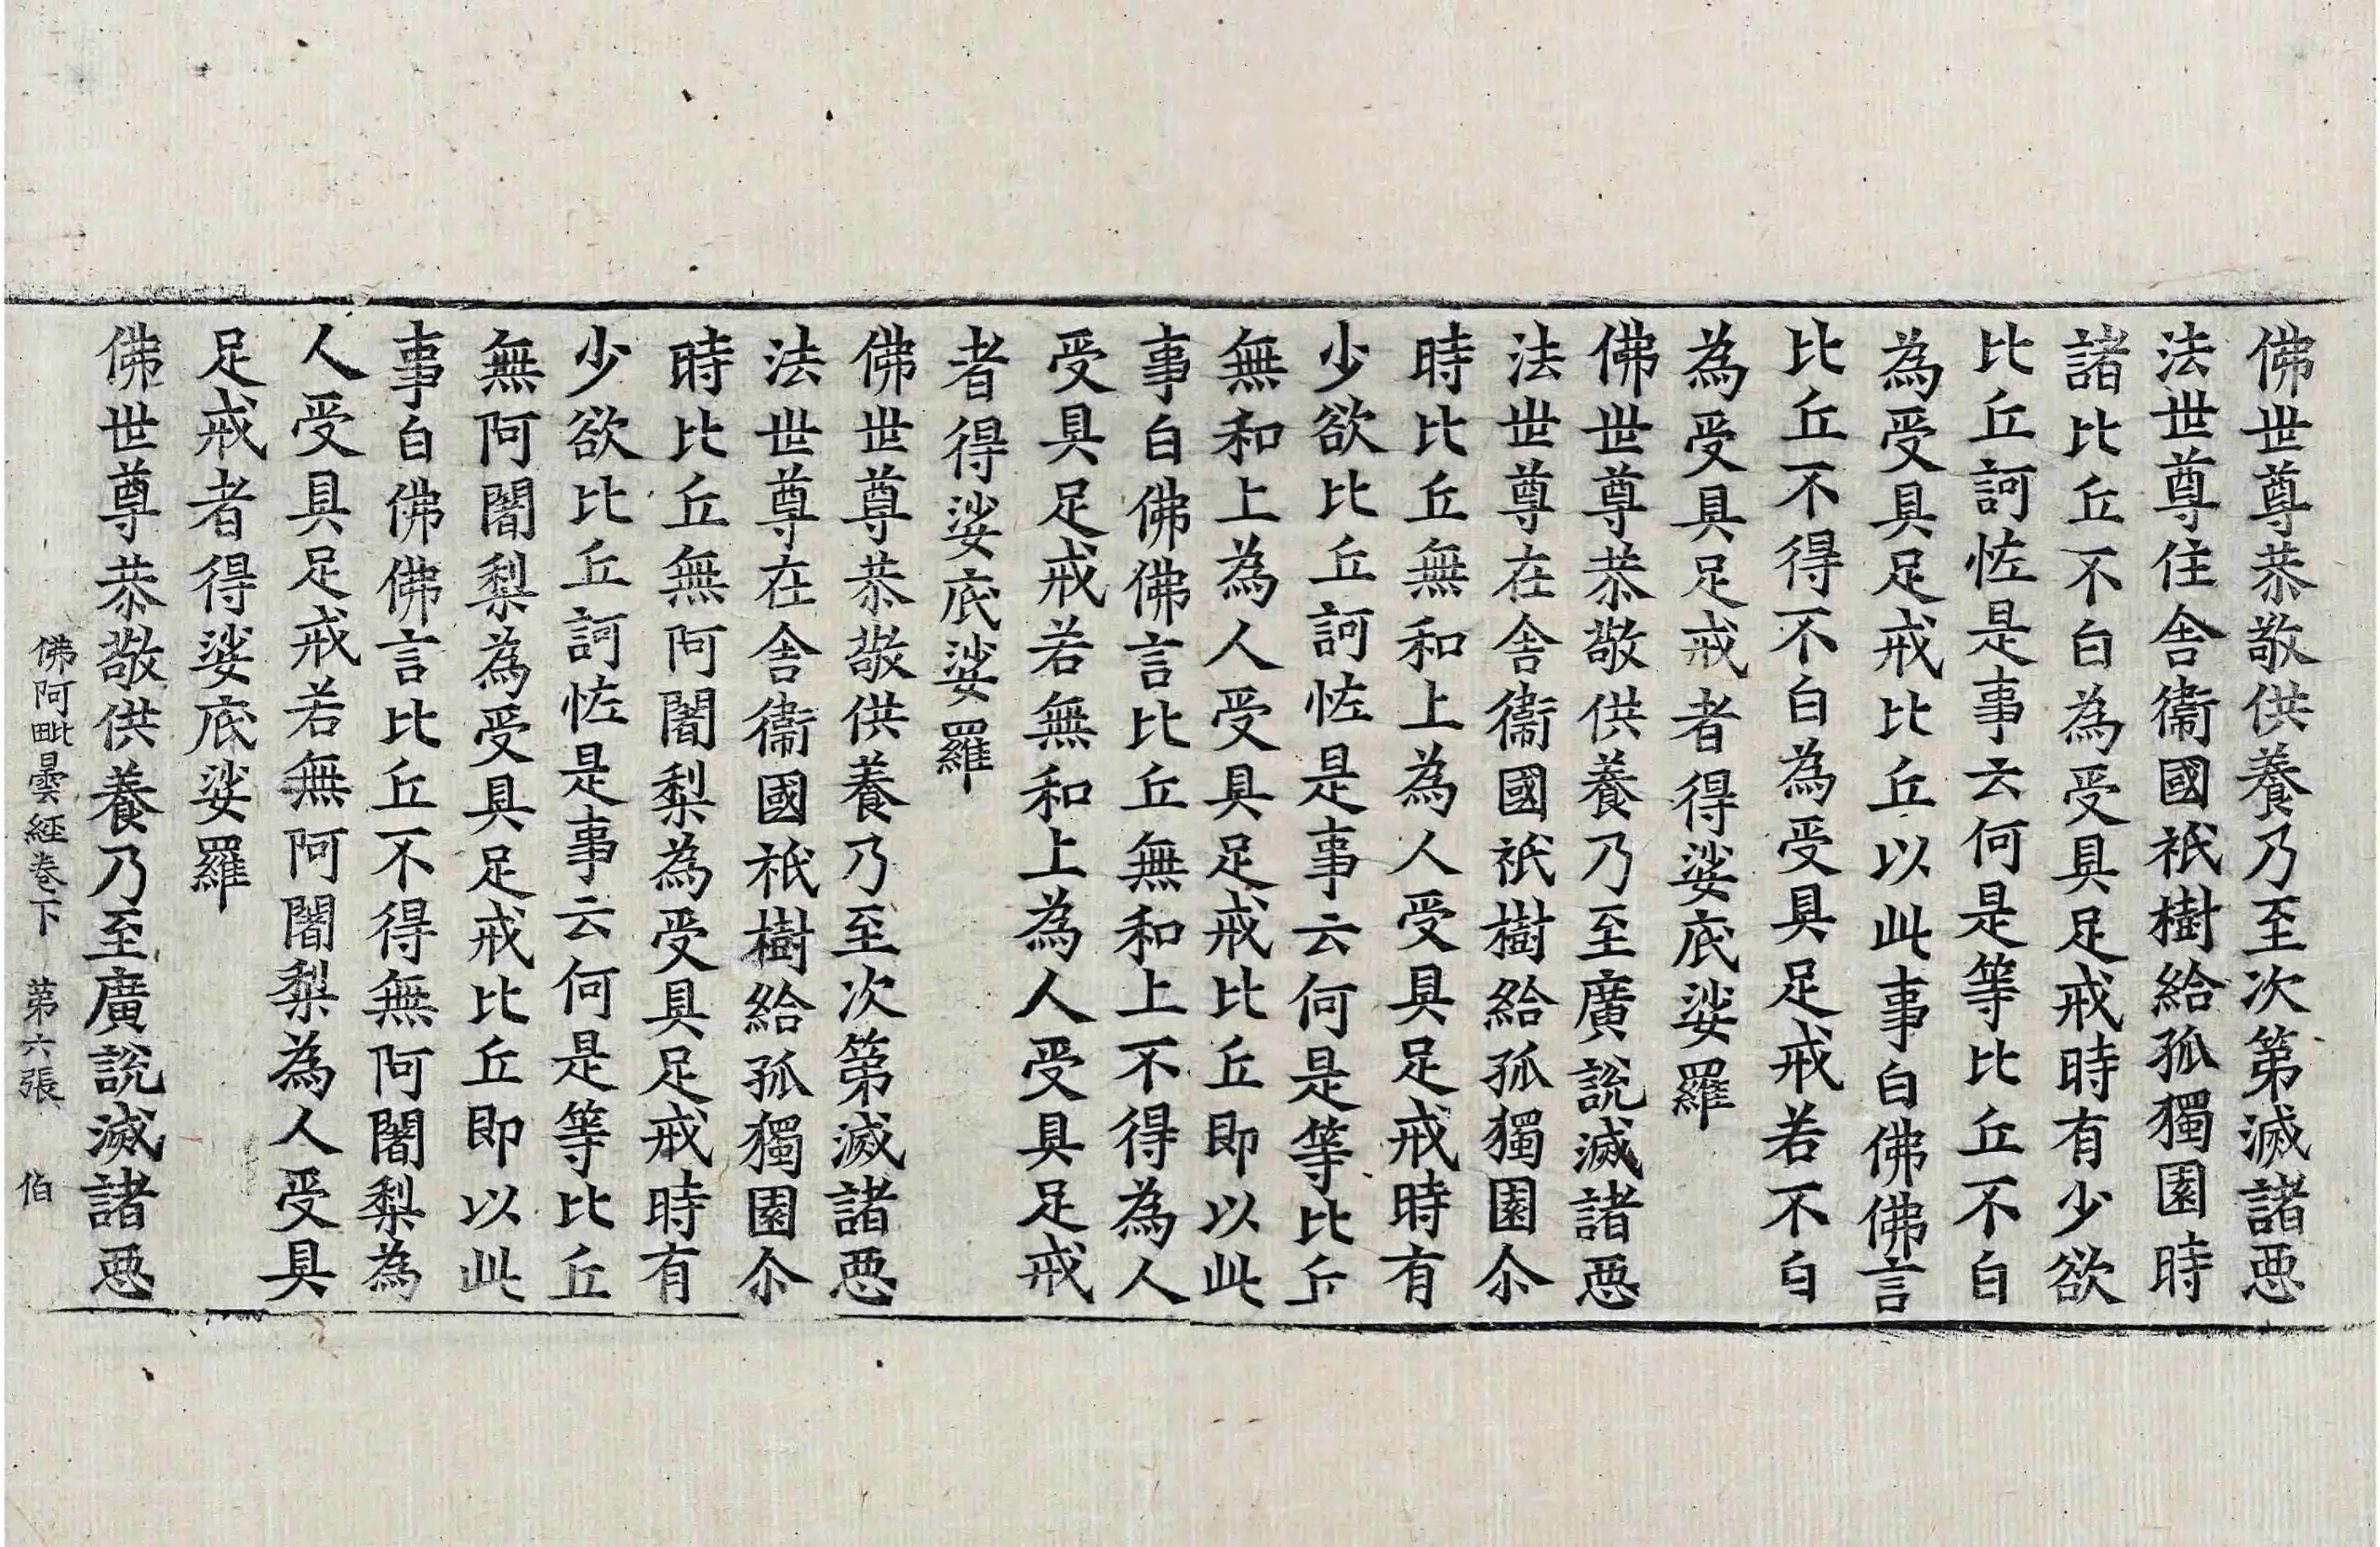 佛世尊恭敬供養乃至次第滅諸惡
法世尊住舍衞國祇樹給孤獨園時
諸比丘不白為受具足戒時有少欲
比丘訶恠是事云何是等比丘不白
為受具足戒比丘以此事白佛佛言
比丘不得不白為受具足戒若不白
為受具足戒者得娑底娑羅
佛世尊恭敬供養乃至廣說滅諸惡
法世尊在舍衞國祇樹給孤獨園尒
時比丘無和上為人受具足戒時有
少欲比丘訶恠是事云何是等比丘
無和上為人受具足戒比丘即以此
事白佛佛言比丘無和上不得為人
受具足戒若無和上為人受具足戒
者得娑底娑羅
佛世尊恭敬供養乃至次第滅諸惡
法世尊在舍衞國祇樹給孤獨園尒
時比丘無阿闍梨為受具足戒時有
少欲比丘訶恠是事云何是等比丘
無阿闍梨為受具足戒比丘即以此
事白佛佛言比丘不得無阿闍梨為
人受具足戒若無阿闍梨為人受具
足戒者得娑底娑羅
佛世尊恭敬供養乃至廣說滅諸惡
佛阿毗曇経卷下　第六張　伯